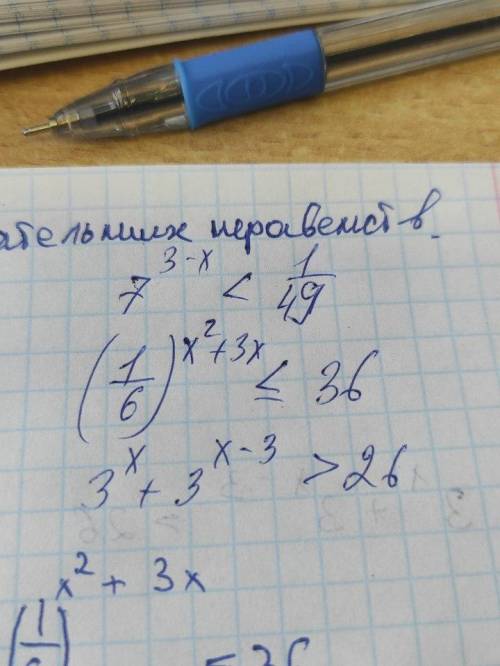 ательных неравенств.
7^{3-x} < \frac{1}{49}
\left(\frac{1}{6}\right)^{x^2+3x} ≤ 36
3^x + 3^{x-3} > 26
x^2 + 3x